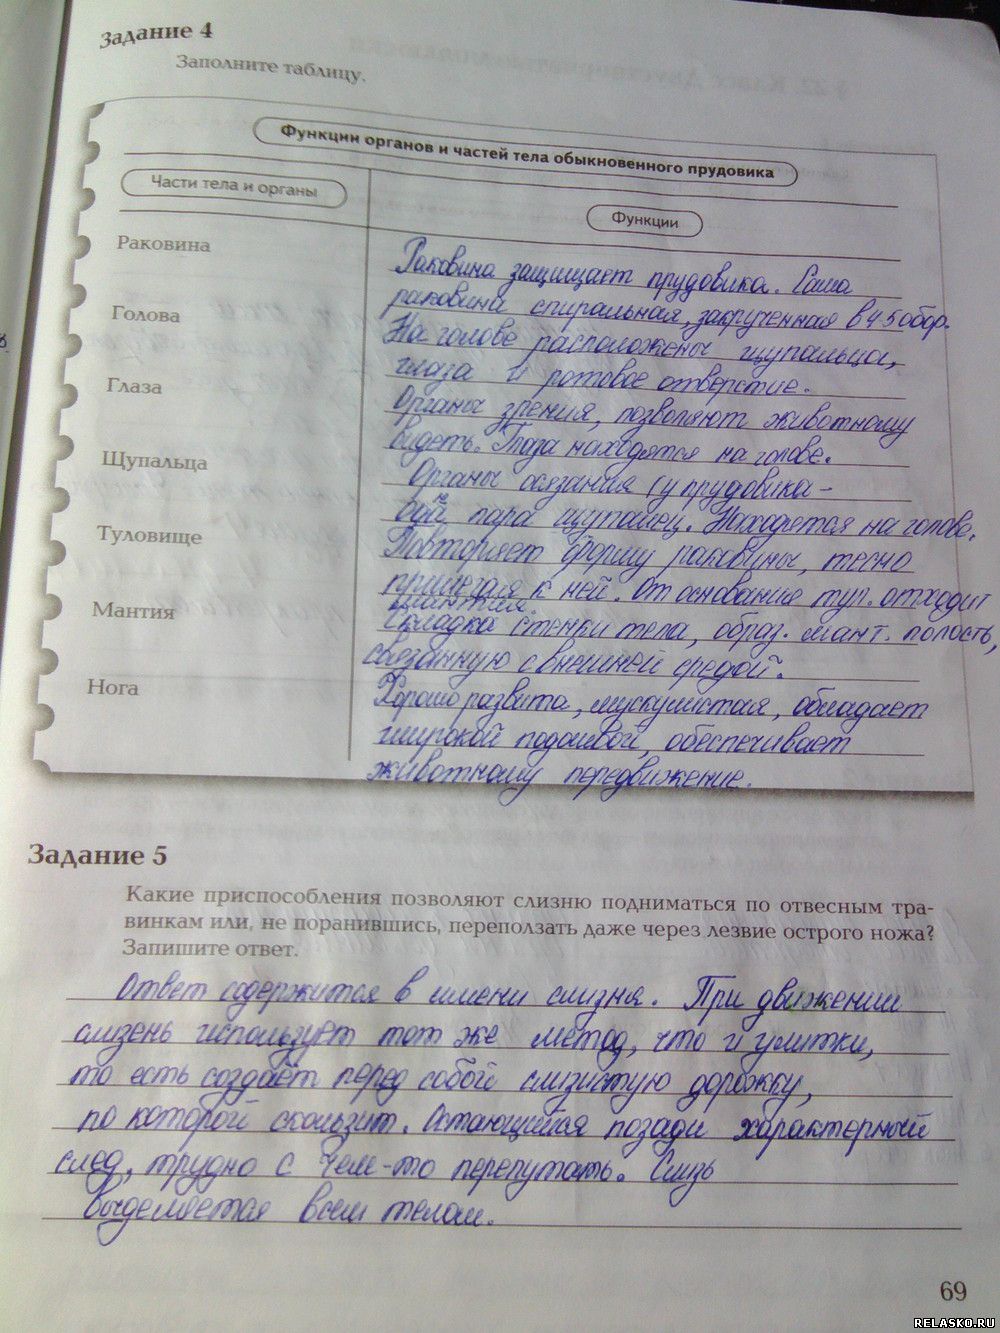 Задание 4
Заполните таблицу.
Функции органов и частей тела обыкновенного прудовика
Части тела и органы
Функции
Раковина
Раковина защищает прудовика. Сама
раковина спиральная, закрученная в 4-5 обор.
Голова
На голове расположены щупальца,
глаза и ротовое отверстие.
Глаза
Органы зрения, позволяют животному
видеть. Глаза находятся на голове.
Щупальца
Органы осязания (у прудовика-
одна пара щупалец. Находятся на голове.
Туловище
Повторяет форму раковины, тесно
прилегая к ней. От основание тул. отходит
мантия.
Мантия
Складка стенки тела, образ. мант. полость,
связанную с внешней средой.
Нога
Хорошо развита, мускулистая, обладает
широкой подошвой, обеспечивает
животному передвижение.
Задание 5
Какие приспособления позволяют слизню подниматься по отвесным тра-
винкам или, не поранившись, переползать даже через лезвие острого ножа?
Запишите ответ.
Ответ содержится в имени слизня. При движении
слизень использует тот же метод, что и улитки,
то есть создаёт перед собой слизистую дорожку,
по которой скользит. Остающийся позади характерный
след, трудно с чем-то перепутать. Слизь
выделяется всем телом.
69
RELASKO.RU